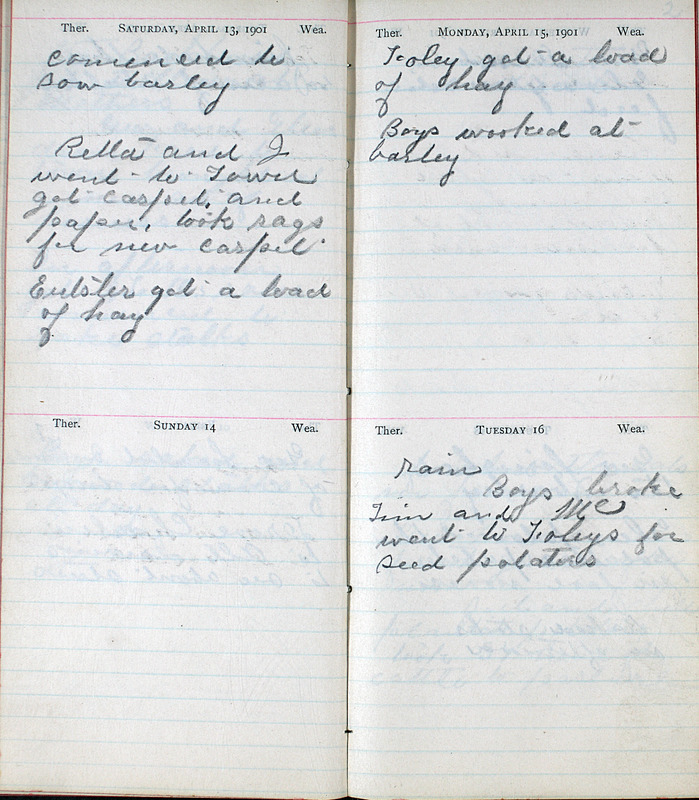 Ther. SATURDAY, APRIL 13, 1901 Wea.
comenced to
sow barley
Retta and I
went to Town
got carpet, and
paper, took rags
for new carpet
got a load
of hay
Ther. SUNDAY 14 Wea.
Ther. MONDAY, APRIL 15, 1901 Wea.
Foley got a load
of hay
Boys worked at
barley
Ther. TUESDAY 16 Wea.
rain
Boys broke
Tim and Mc
went to Foleys for
seed potatoes